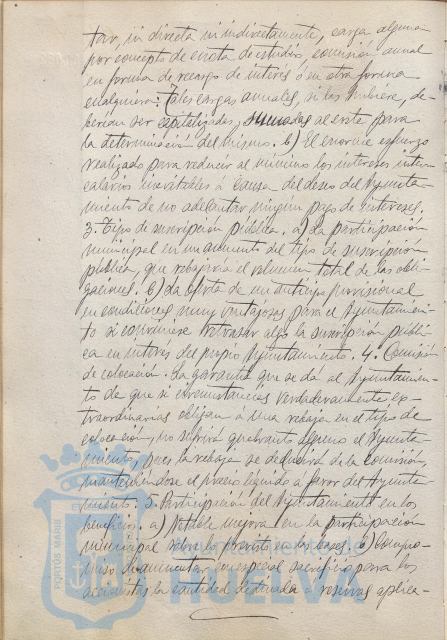 tar, ni directa ni indirectamente, carga alguna
por concepto de cuota de estudio, comisión anual
en forma de recargo de interés ó en otra forma
cualquiera. Tales cargas anuales, si las hubiere, de-
berían ser capitalizadas, sumadas al coste para
la determinación del mismo. b) El enorme esfuerzo
realizado para reducir al mínimo los intereses inter-
calarios inevitables á causa del deseo del Ayunta-
miento de no adelantar ningún pago de intereses.
3. Tipo de suscripción pública. a) La participación
municipal en un aumento del tipo de suscripción
pública, que rebajaría el volumen total de las obli-
gaciones. b) La oferta de un anticipo provisional
en condiciones muy ventajosas para el Ayuntamien-
to si conviniese retrasar algo la suscripción públi-
ca en interés del propio Ayuntamiento. 4. Comisión
de colocación. La garantía que se dá al Ayuntamien-
to de que si circunstancias verdaderamente ex-
traordinarias obligan á una rebaja en el tipo de
colocación, no sufrirá quebranto alguno el Ayunta-
miento, pues la rebaja se deducirá de la comisión,
manteniéndose el precio líquido á favor del Ayunta-
miento. 5. Participación del Ayuntamiento en los
beneficios. a) Notable mejora en la participación
municipal sobre lo previsto en las bases. b) Compro-
miso de aumentar con especial sacrificio para los
accionistas la cantidad destinada á reservas aplica-
PORTUS MARIS
HUELVA